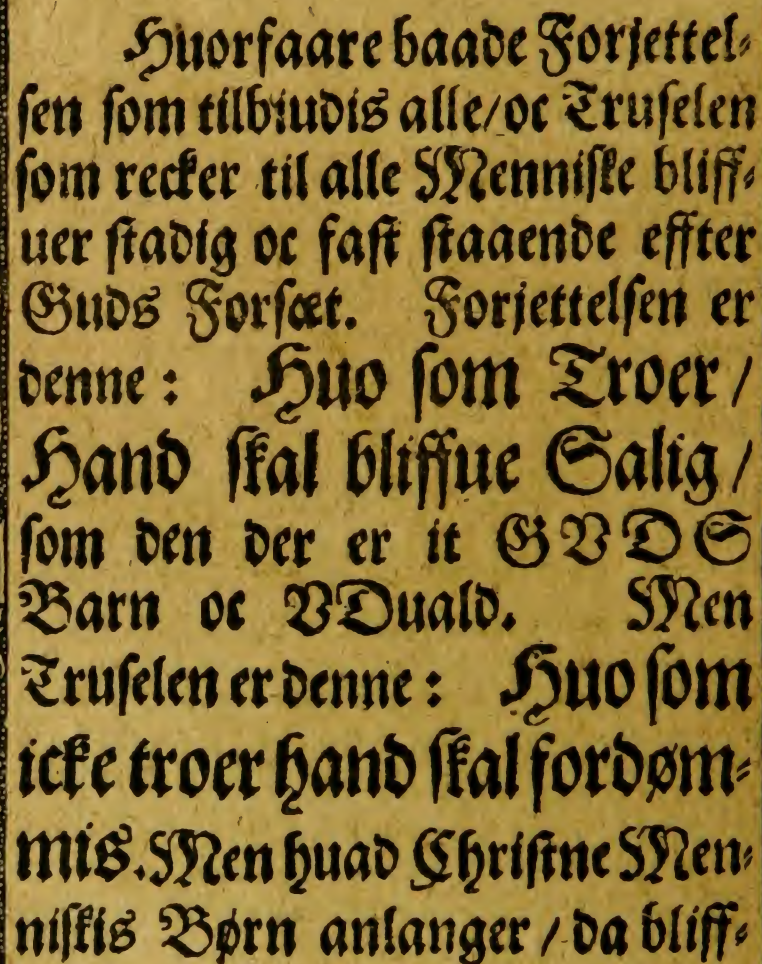 Huorfaare baade Forjettel-
sen som tilbiudis alle/ oc Truselen
som recker til alle Menniske bliff-
uer stadig oc fast staaende effter
Guds Forsæt. Forjettelsen er
denne: Huo som Troer /
Hand skal bliffue Salig /
som den der er it GVDS
Barn oc VDuald. Men
Truselen er denne: Huo som
icke troer hand skal fordøm-
mis. Men huad Christne Men-
niskis Børn anlanger / da bliff-